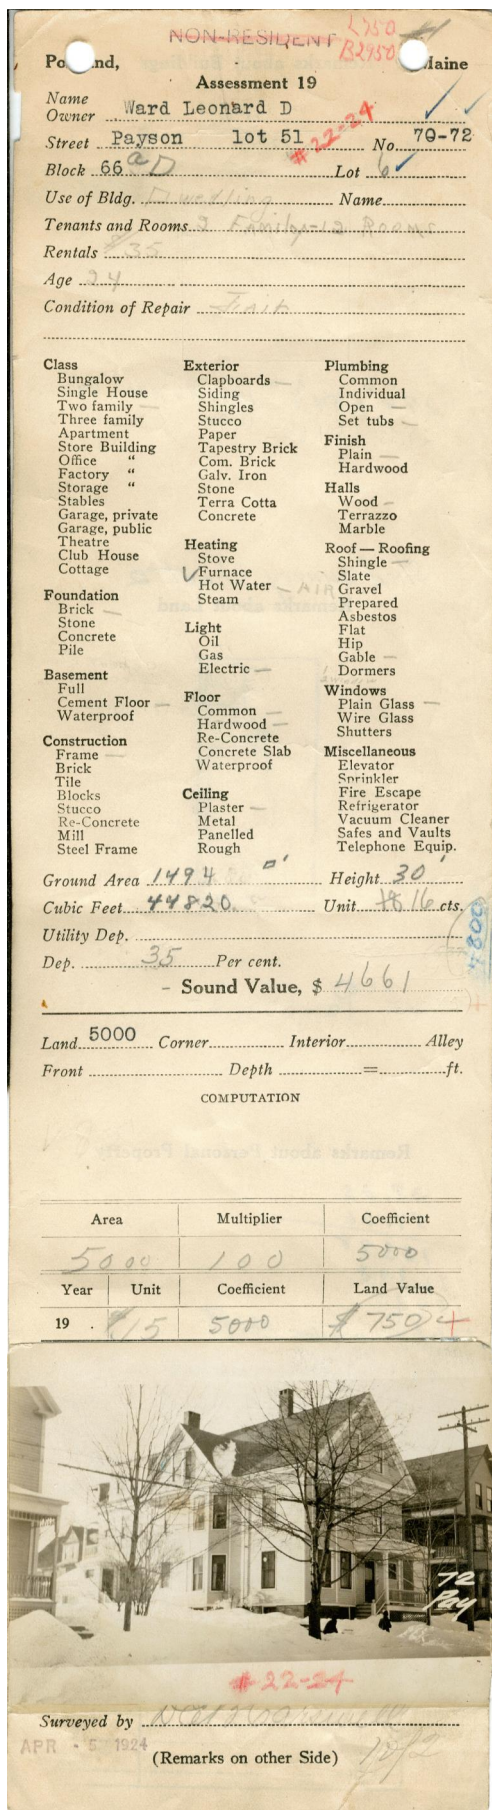 NON-RESIDENT
L750
B2950
#1
Portland, Maine
Assessment 19
Name
Owner Ward Leonard D
Street Payson lot 51 #22-24 No. 70-72
Block 66 a D Lot 6
Use of Bldg. Dwelling Name
Tenants and Rooms 2 Family-12 Rooms
Rentals $35
Age 24
Condition of Repair Fair
Class
Bungalow
Single House —
Two family —
Three family
Apartment
Store Building
Office "
Factory "
Storage "
Stables
Garage, private
Garage, public
Theatre
Club House
Cottage
Foundation
Brick —
Stone
Concrete
Pile
Basement
Full
Cement Floor —
Waterproof
Construction
Frame —
Brick
Tile
Blocks
Stucco
Re-Concrete
Mill
Steel Frame
Exterior
Clapboards —
Siding
Shingles
Stucco
Paper
Tapestry Brick
Com. Brick
Galv. Iron
Stone
Terra Cotta
Concrete
Heating
Stove
✓ Furnace
Hot Water — AIR
Steam
Light
Oil
Gas
Electric —
Floor
Common —
Hardwood —
Re-Concrete
Concrete Slab
Waterproof
Ceiling
Plaster —
Metal
Panelled
Rough
Plumbing
Common
Individual
Open —
Set tubs —
Finish
Plain —
Hardwood
Halls
Wood —
Terrazzo
Marble
Roof — Roofing
Shingle —
Slate
Gravel
Prepared
Asbestos
Flat
Hip
Gable —
Dormers
Windows
Plain Glass —
Wire Glass
Shutters
Miscellaneous
Elevator
Sprinkler
Fire Escape
Refrigerator
Vacuum Cleaner
Safes and Vaults
Telephone Equip.
Ground Area 1494 □' Height 30'
Cubic Feet 44820 Unit 18 16 cts.
4800
Utility Dep.
Dep. 35 Per cent.
- Sound Value, $ 4661
Land 5000 Corner Interior Alley
Front Depth = ft.
COMPUTATION
Area Multiplier Coefficient
5000 100 5000
Year Unit Coefficient Land Value
19 . $15 5000 $750
72
Pay
#22-24
Surveyed by
APR - 5 1924
(Remarks on other Side)